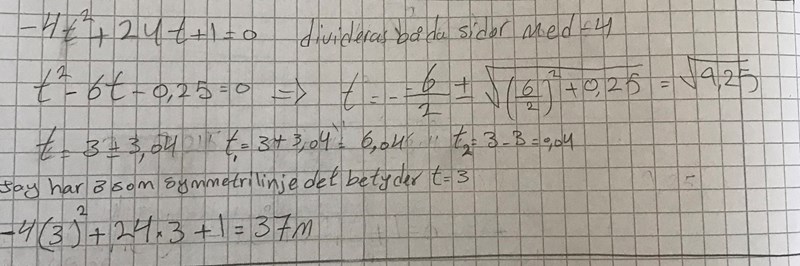 -4t²+24t+1=0 divideras båda sidor med -4
t²-6t-0,25=0 => t=--6/2 ± √((6/2)²+0,25) = √9,25
t=3±3,04 t₁=3+3,04=6,04 t₂=3-3=0,04
har 3 som symmetrilinje det betyder t=3
-4(3)²+24×3+1=37m